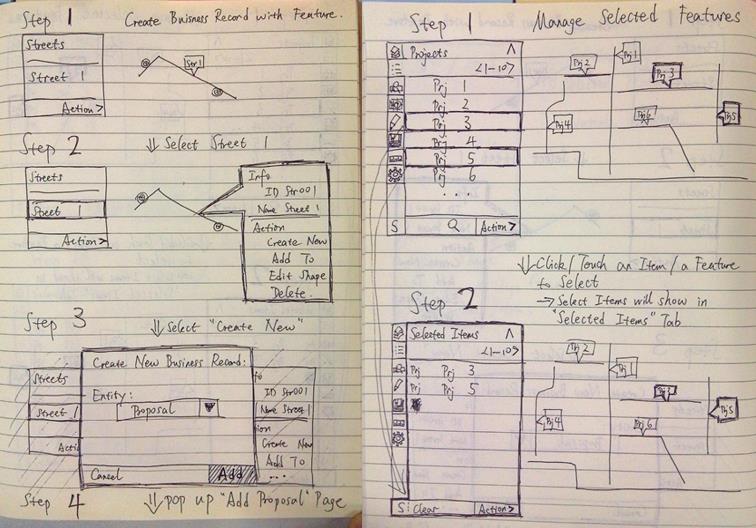 Step 1 Create Buisness Record with Feature.
Streets
Street 1
Action >
Str1
Step 2 ⇓ Select Street 1
Streets
Street 1
Action >
Info
ID Str001
Name Street 1
Action
Create New
Add To
Edit Shape
Delete.
Step 3 ⇓ Select "Create New"
Streets
Street 1
Acti
Create New Business Record:
Entity:
Proposal ▼
Cancel Add
fo
ID Str001
Name Street 1
tion
Create New
Add To
...
Step 4 ⇓ pop up "Add Proposal" Page
Step 1 Manage Selected Features
Projects Λ
<1-10>
Prj 1
Prj 2
Prj 3
Prj 4
Prj 5
Prj 6
...
S Q Action >
Prj 2
Prj 1
Prj 3
Prj 4
Prj 6
Prj 5
⇓ Click / Touch an Item / a Feature
to Select
→ Select Items will show in
"Selected Items" Tab
Step 2
Selected Items Λ
<1-10>
Prj Prj 3
Prj Prj 5
S: Clear Action >
Prj 2
Prj 1
Prj 3
Prj 4
Prj 6
Prj 5